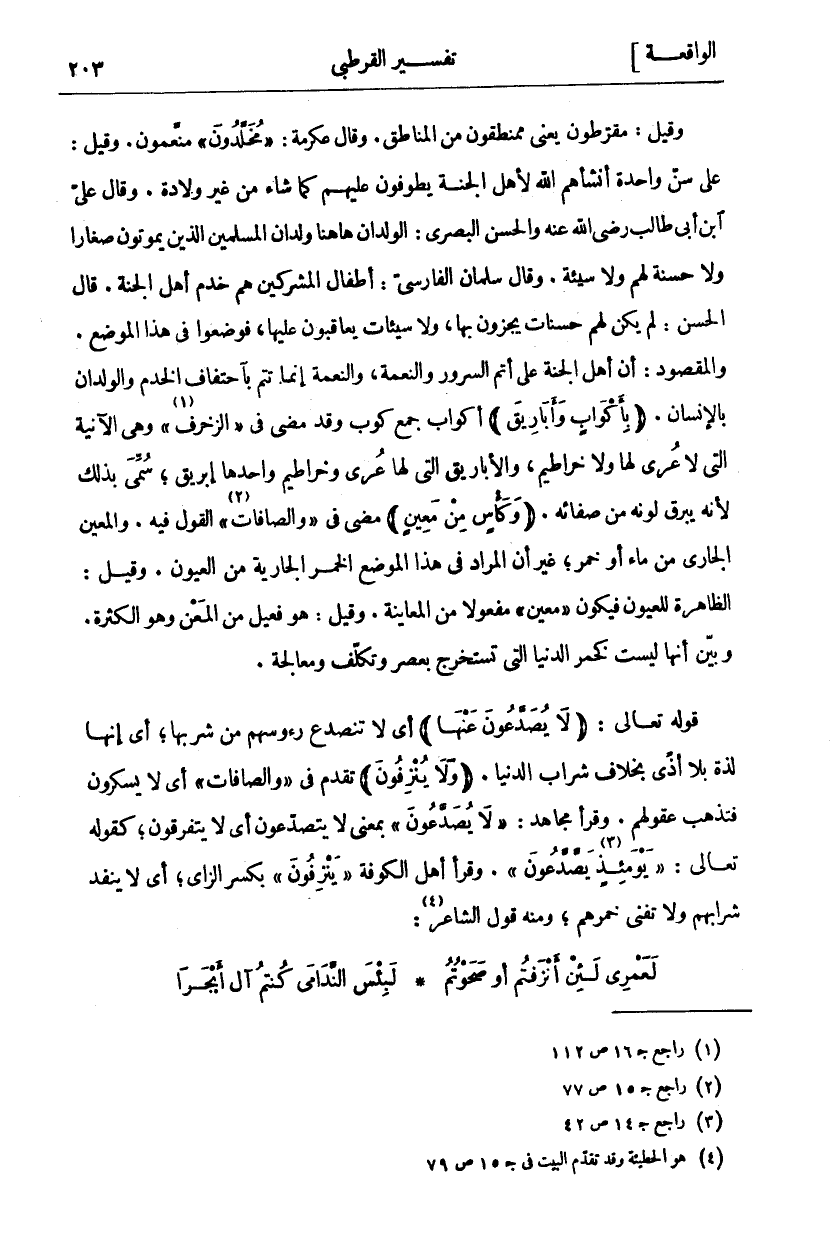 الواقعـــة ] تفســـير القرطبى ٢٠٣
وقيل : مقرّطون يعنى ممنطقون من المناطق. وقال عكرمة : «مُخَلَّدُونَ» منعّمون. وقيل :
على سنّ واحدة أنشأهم الله لأهل الجنـة يطوفون عليهـم كما شاء من غير ولادة . وقال علىّ
آبن أبى طالب رضى الله عنه والحسن البصرى : الولدان هاهنا ولدان المسلمين الذين يموتون صغارا
ولا حسنة لهم ولا سيئة . وقال سلمان الفارسىّ : أطفال المشركين هم خدم أهل الجنة . قال
الحسن : لم يكن لهم حسنات يجزون بها، ولا سيئات يعاقبون عليها، فوضعوا فى هذا الموضع .
والمقصود : أن أهل الجنة على أتم السرور والنعمة، والنعمة إنمـا تتم بآحتفاف الخدم والولدان
بالإنسان . ﴿ بِأَكْوَابٍ وَأَبَارِيقَ ﴾ أكواب جمع كوب وقد مضى فى « الزخرف(١) » وهى الآنية
التى لا عُرى لها ولا خراطيم، والأباريق التى لها عُرى وخراطيم واحدها إبريق ؛ سُمِّىَ بذلك
لأنه يبرق لونه من صفائه . ﴿ وَكَأْسٍ مِنْ مَعِينٍ ﴾ مضى فى «والصافات(٢)» القول فيه . والمعين
الجارى من ماء أو خمر؛ غير أن المراد فى هذا الموضع الخمـر الجارية من العيون . وقيـل :
الظاهرة للعيون فيكون «معين» مفعولا من المعاينة . وقيل : هو فعيل من المَعْن وهو الكثرة.
وبيّن أنها ليست كخمر الدنيا التى تستخرج بعصر وتكلّف ومعالجة .
قوله تعـالى : ﴿ لَا يُصَدَّعُونَ عَنْهَـا ﴾ أى لا تنصدع رءوسهم من شربها؛ أى إنهـا
لذة بلا أذًى بخلاف شراب الدنيا . ﴿ وَلَا يُنْزِفُونَ ﴾ تقدم فى «والصافات» أى لا يسكرون
فتذهب عقولهم . وقرأ مجاهد : « لَا يُصَدَّعُونَ » بمعنى لا يتصدّعون أى لا يتفرقون ؛ كقوله
تعـالى : « يَوْمَئِذٍ يَصَّدَّعُونَ(٣) » . وقرأ أهل الكوفة « يُنْزِفُونَ » بكسر الزاى؛ أى لا ينفد
شرابهم ولا تفنى خمرهم ؛ ومنه قول الشاعر(٤) :
لَعَمْرِى لَـئِنْ أَنْزَفْتُم أو صَحَوْتُمُ * لَبِئْسَ النَّدَامَى كُنتُم آل أَبْجَـرَا
(١) راجع جـ ١٦ ص ١١٢
(٢) راجع جـ ١٥ ص ٧٧
(٣) راجع جـ ١٤ ص ٤٢
(٤) هو الحطيئة وقد تقدّم البيت فى جـ ١٥ ص ٧٩